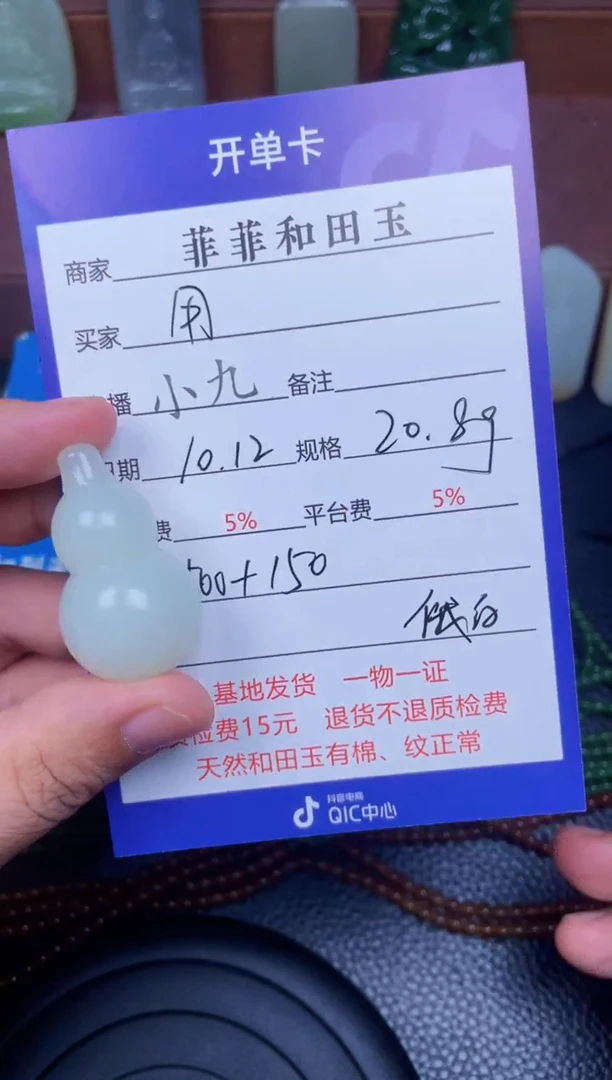 开单卡
商家 菲菲和田玉
买家 周
播 小九 备注
日期 10.12 规格 20.8g
费 5% 平台费 5%
00+150
基地发货 一物一证
质检费15元 退货不退质检费
天然和田玉有棉、纹正常
抖音电商
QIC中心